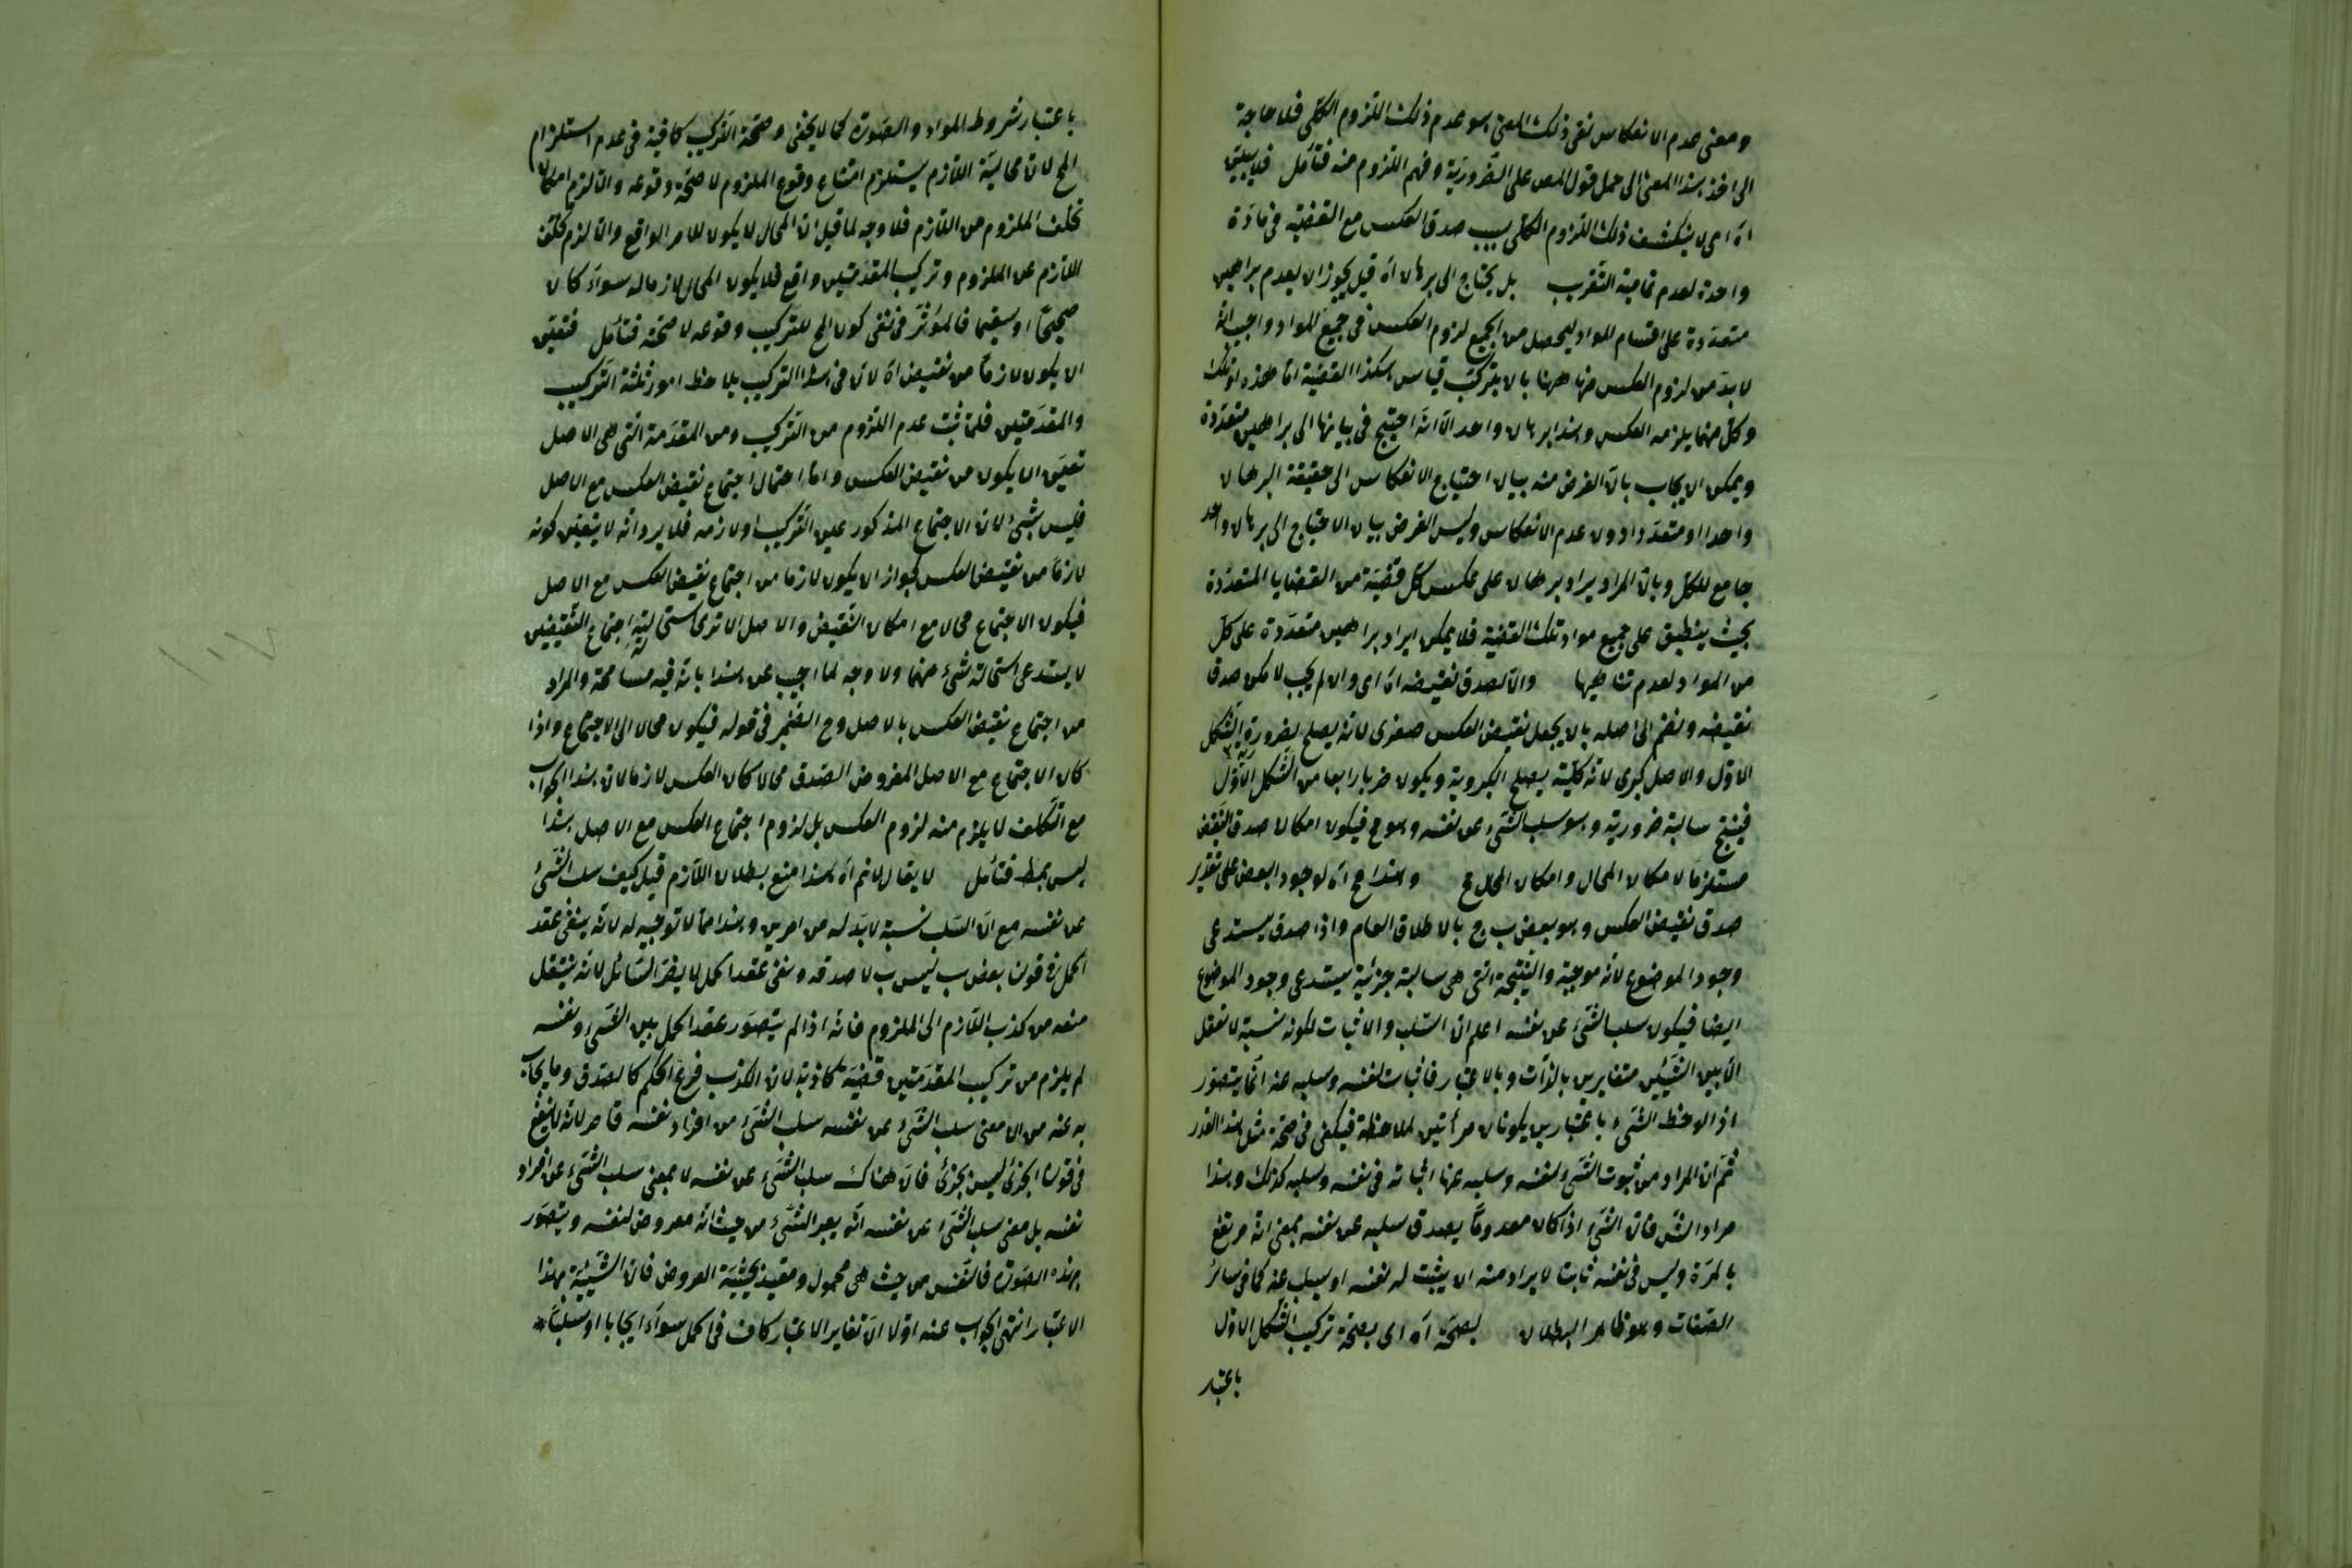 ومعنى عدم الانعكاس نفى ذلك المعنى هو عدم ذلك اللزوم الكلى فلا حاجة
الى اخذ هذا المعنى الى حمل قول المص على الضرورية وفهم اللزوم منه فتأمل فلا يتبين
اه اى لا ينكشف ذلك اللزوم الكلى بسبب صدق العكس مع القضية فى مادة
واحدة لعدم تمامية التقريب بل يحتاج الى برهان اه قيل يجوز ان يعدم براهين
متعددة على اقسام المواد ليحصل من الجميع لزوم العكس فى جميع المواد واجيب بانه
لا بد من لزوم العكس منها ههنا بان يتركب قياس هكذا القضية اما هذه او تلك
وكل منهما يلزمه العكس وهذا برهان واحد الا انه احتيج فى بيانها الى براهين متعددة
ويمكن ان يجاب بان الغرض منه بيان احتياج الانعكاس الى حقيقة البرهان
واحدا او متعددا دون عدم الانعكاس وليس الغرض بيان الاحتياج الى برهان واحد
جامع للكل وبان المراد يراد برهان على عكس كل قضية من القضايا المتعددة
بحيث ينطبق على جميع مواد تلك القضية فلا يمكن ايراد براهين متعددة على كل
من المواد لعدم تناهيها والا لصدق نقيضه اه اى وان لم يجب لامكن صدق
نقيضه ونضم الى اصله بان يجعل نقيض العكس صغرى لانه يصلح لصغروية الشكل
الاول والاصل كبرى لانه كلية يصلح الكبروية ويكون ضربا رابعا من الشكل الاول
فينتج سالبة ضرورية وهو سلب الشئ عن نفسه وهو مح فيكون امكان صدق النقيض
مستلزما لامكان المحال وامكان المحال مح وهذا مح اه لوجود البعض على تقدير
صدق نقيض العكس وهو بعض ب ج بالاطلاق العام واذا صدق يستدعى
وجود الموضوع لانه موجبة والنتيجة التى هى سالبة جزئية يستدعى وجود الموضوع
ايضا فيكون سلب الشئ عن نفسه اعلم ان السلب والاثبات لكونه نسبة لا نعقل
الا بين الشيئين متغايرين بالذات وبالاعتبار فاثبات نفسه وسلبه عنه انما يتصور
اذا لوحظ الشئ باعتبارين يكونان مرأتين لملاحظة فيكفى فى صحة مثل هذا القدر
ثم ان المراد من ثبوت الشئ لنفسه وسلبه عنها اثباته فى نفسه وسلبه كذلك وهذا
مراد الش فان الشئ اذا كان معدوما يصدق سلبه عن نفسه بمعنى انه مرتفع
بالمرة وليس فى نفسه ثابتا لا يراد منه ان يثبت له نفسه او يسلب عنه كما فى سائر
الصفات وهو ظاهر البطلان لصحة اه اى بصحة تركيب الشكل الاول
باعتبار
باعتبار شروط المواد والصورة كما لا يخفى وصحة التركيب كافية فى عدم استلزام
المح لان محالية اللازم يستلزم امتناع وقوع الملزوم لا صحة وقوعه والا لزم امكان
تخلف الملزوم من اللازم فلا وجه لما قيل ان المحال لا يكون للامر الواقع والا لزم تخلف
اللازم عن الملزوم وتركيب المقدمتين واقع فلا يكون المحال لازما له سواء كان
صحيحا او سقيما فالمؤثر فى نفى كون المح للتركيب وقوعه لا صحته فتأمل فتعين
ان يكون لازما من نقيض اه لان فى هذا التركيب يلاحظ امور ثلثة التركيب
والمقدمتين فلما ثبت عدم اللزوم من التركيب ومن المقدمة التى هى الاصل
تعين ان يكون من نقيض العكس واما احتمال اجتماع نقيض العكس مع الاصل
فليس بشئ لان الاجتماع المذكور عين التركيب او لازمه فلا يرد انه لا يتعين كونه
لازما من نقيض العكس لجواز ان يكون لازما من اجتماع نقيض العكس مع الاصل
فيكون الاجتماع محالا مع امكان النقيض والاصل الا ترى استحالية اجتماع النقيضين
لا يستدعى استحالة شئ منهما ولا وجه لما اجيب عن هذا بانه فيه مسامحة والمراد
من اجتماع نقيض العكس بالاصل وح الضمير فى قوله فيكون محالا الى الاجتماع واذا
كان الاجتماع مع الاصل المفروض الصدق محالا كان العكس لازما لان هذا الجواب
مع التكلف لا يلزم منه لزوم العكس بل لزوم اجتماع العكس مع الاصل هذا
ليس بمط فتأمل لا يقال لا نم اه هذا منع بطلان اللازم قيل كيف سلب الشئ
عن نفسه مع ان السلب نسبة لا بد له من امرين وهذا مما لا توجيه له لانه ينفى عقد
الحمل فى قولنا بعض ب ليس ب لا صدقه ونفى عقد الحمل لا يضر السائل لانه ينتقل
منعه من كذب اللازم الى الملزوم فانه اذا لم يتصور عقد الحمل بين الشئ ونفسه
لم يلزم من تركيب المقدمتين قضية كاذبة لان الكذب فرع الحكم كالصدق وما يجاب
به عنه من ان معنى سلب الشئ عن نفسه سلب الشئ من افراد نفسه قاصر لانه لا ينفع
فى قولنا الجزئى ليس بجزئى فان هناك سلب الشئ عن نفسه لا بمعنى سلب الشئ عن افراد
نفسه بل معنى سلب الشئ عن نفسه انه يعبر الشئ من حيث انه معروض لنفسه ويتصور
بهذه الصورة فالنفس من حيث هى محمول ومقيد بحيثية العروض فان الشيئية بهذا
الاعتبار انتهى الجواب عنه اولا ان تغاير الاعتبار كاف فى الحمل سواء ايجابا او سلبا